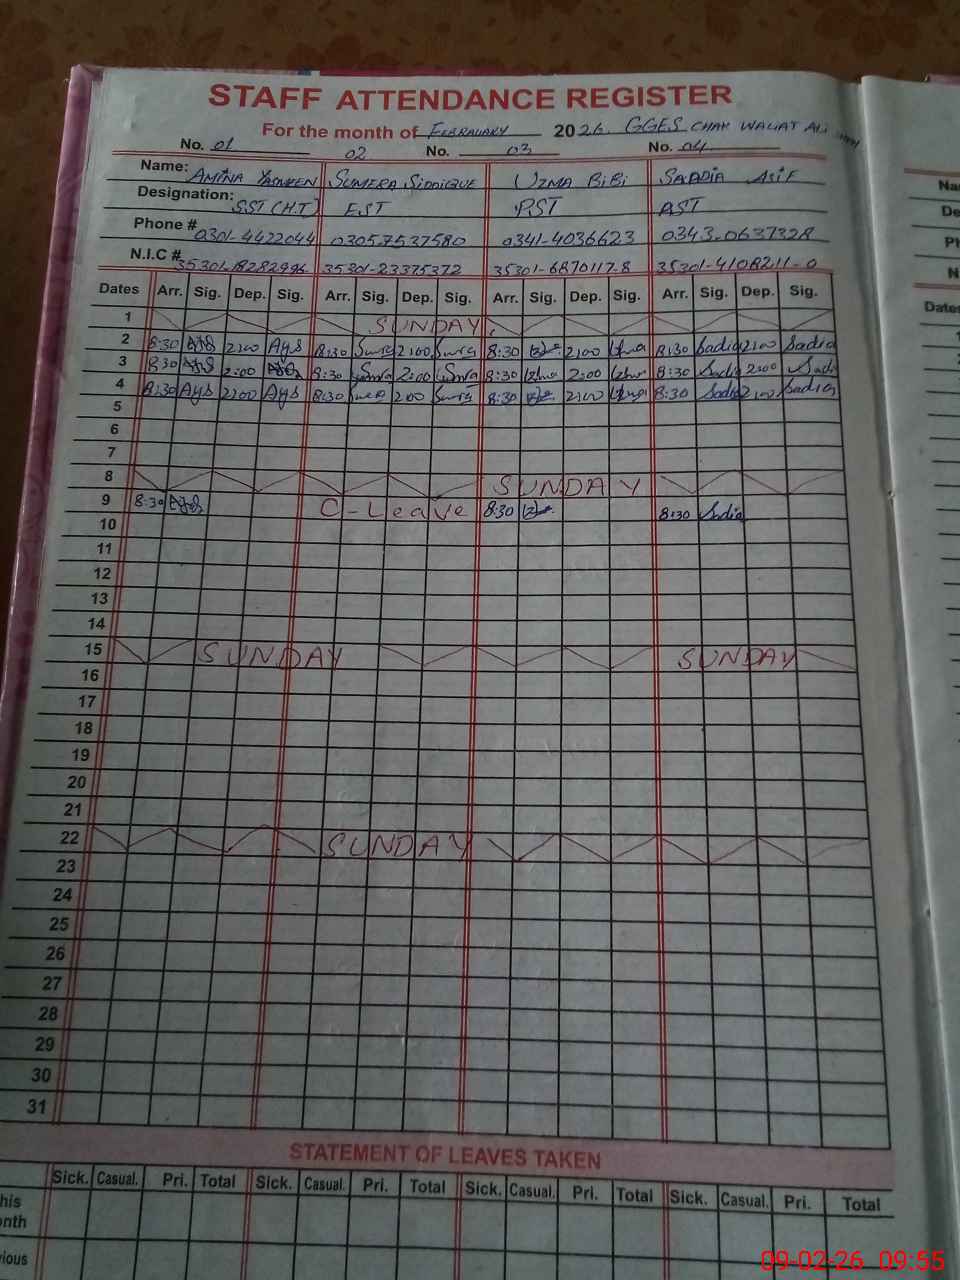 STAFF ATTENDANCE REGISTER
For the month of FEBRAUARY 2026. GGES CHAK WALIAT ALI
No. 01 02 No. 03 No. 04
Name: AMINA YASMEEN SUMERA SIDDIQUE UZMA BIBI SAADIA ASIF
Designation: SST (H.T) EST PST PST
Phone # 0301-4422044 03057537580 0341-4036623 0343-0637328
N.I.C # 35301-23375372 35301-6870117-8 35301-4108211-0
Dates Arr. Sig. Dep. Sig. Arr. Sig. Dep. Sig. Arr. Sig. Dep. Sig. Arr. Sig. Dep. Sig.
1 SUNDAY
2 8:30 2:00 8:30 2:00 8:30 2:00 8:30 Sadia 2:00 Sadia
3 8:30 2:00 8:30 2:00 8:30 2:00 8:30 Sadia 2:00 Sadia
4 8:30 2:00 8:30 2:00 8:30 2:00 8:30 Sadia 2:00 Sadia
5
6
7
8 SUNDAY
9 8:30 C-Leave 8:30 8:30 Sadia
10
11
12
13
14
15 SUNDAY SUNDAY
16
17
18
19
20
21
22 SUNDAY
23
24
25
26
27
28
29
30
31
STATEMENT OF LEAVES TAKEN
Sick. Casual. Pri. Total Sick. Casual. Pri. Total Sick. Casual. Pri. Total Sick. Casual. Pri. Total
his
onth
vious
09-02-26 09:55